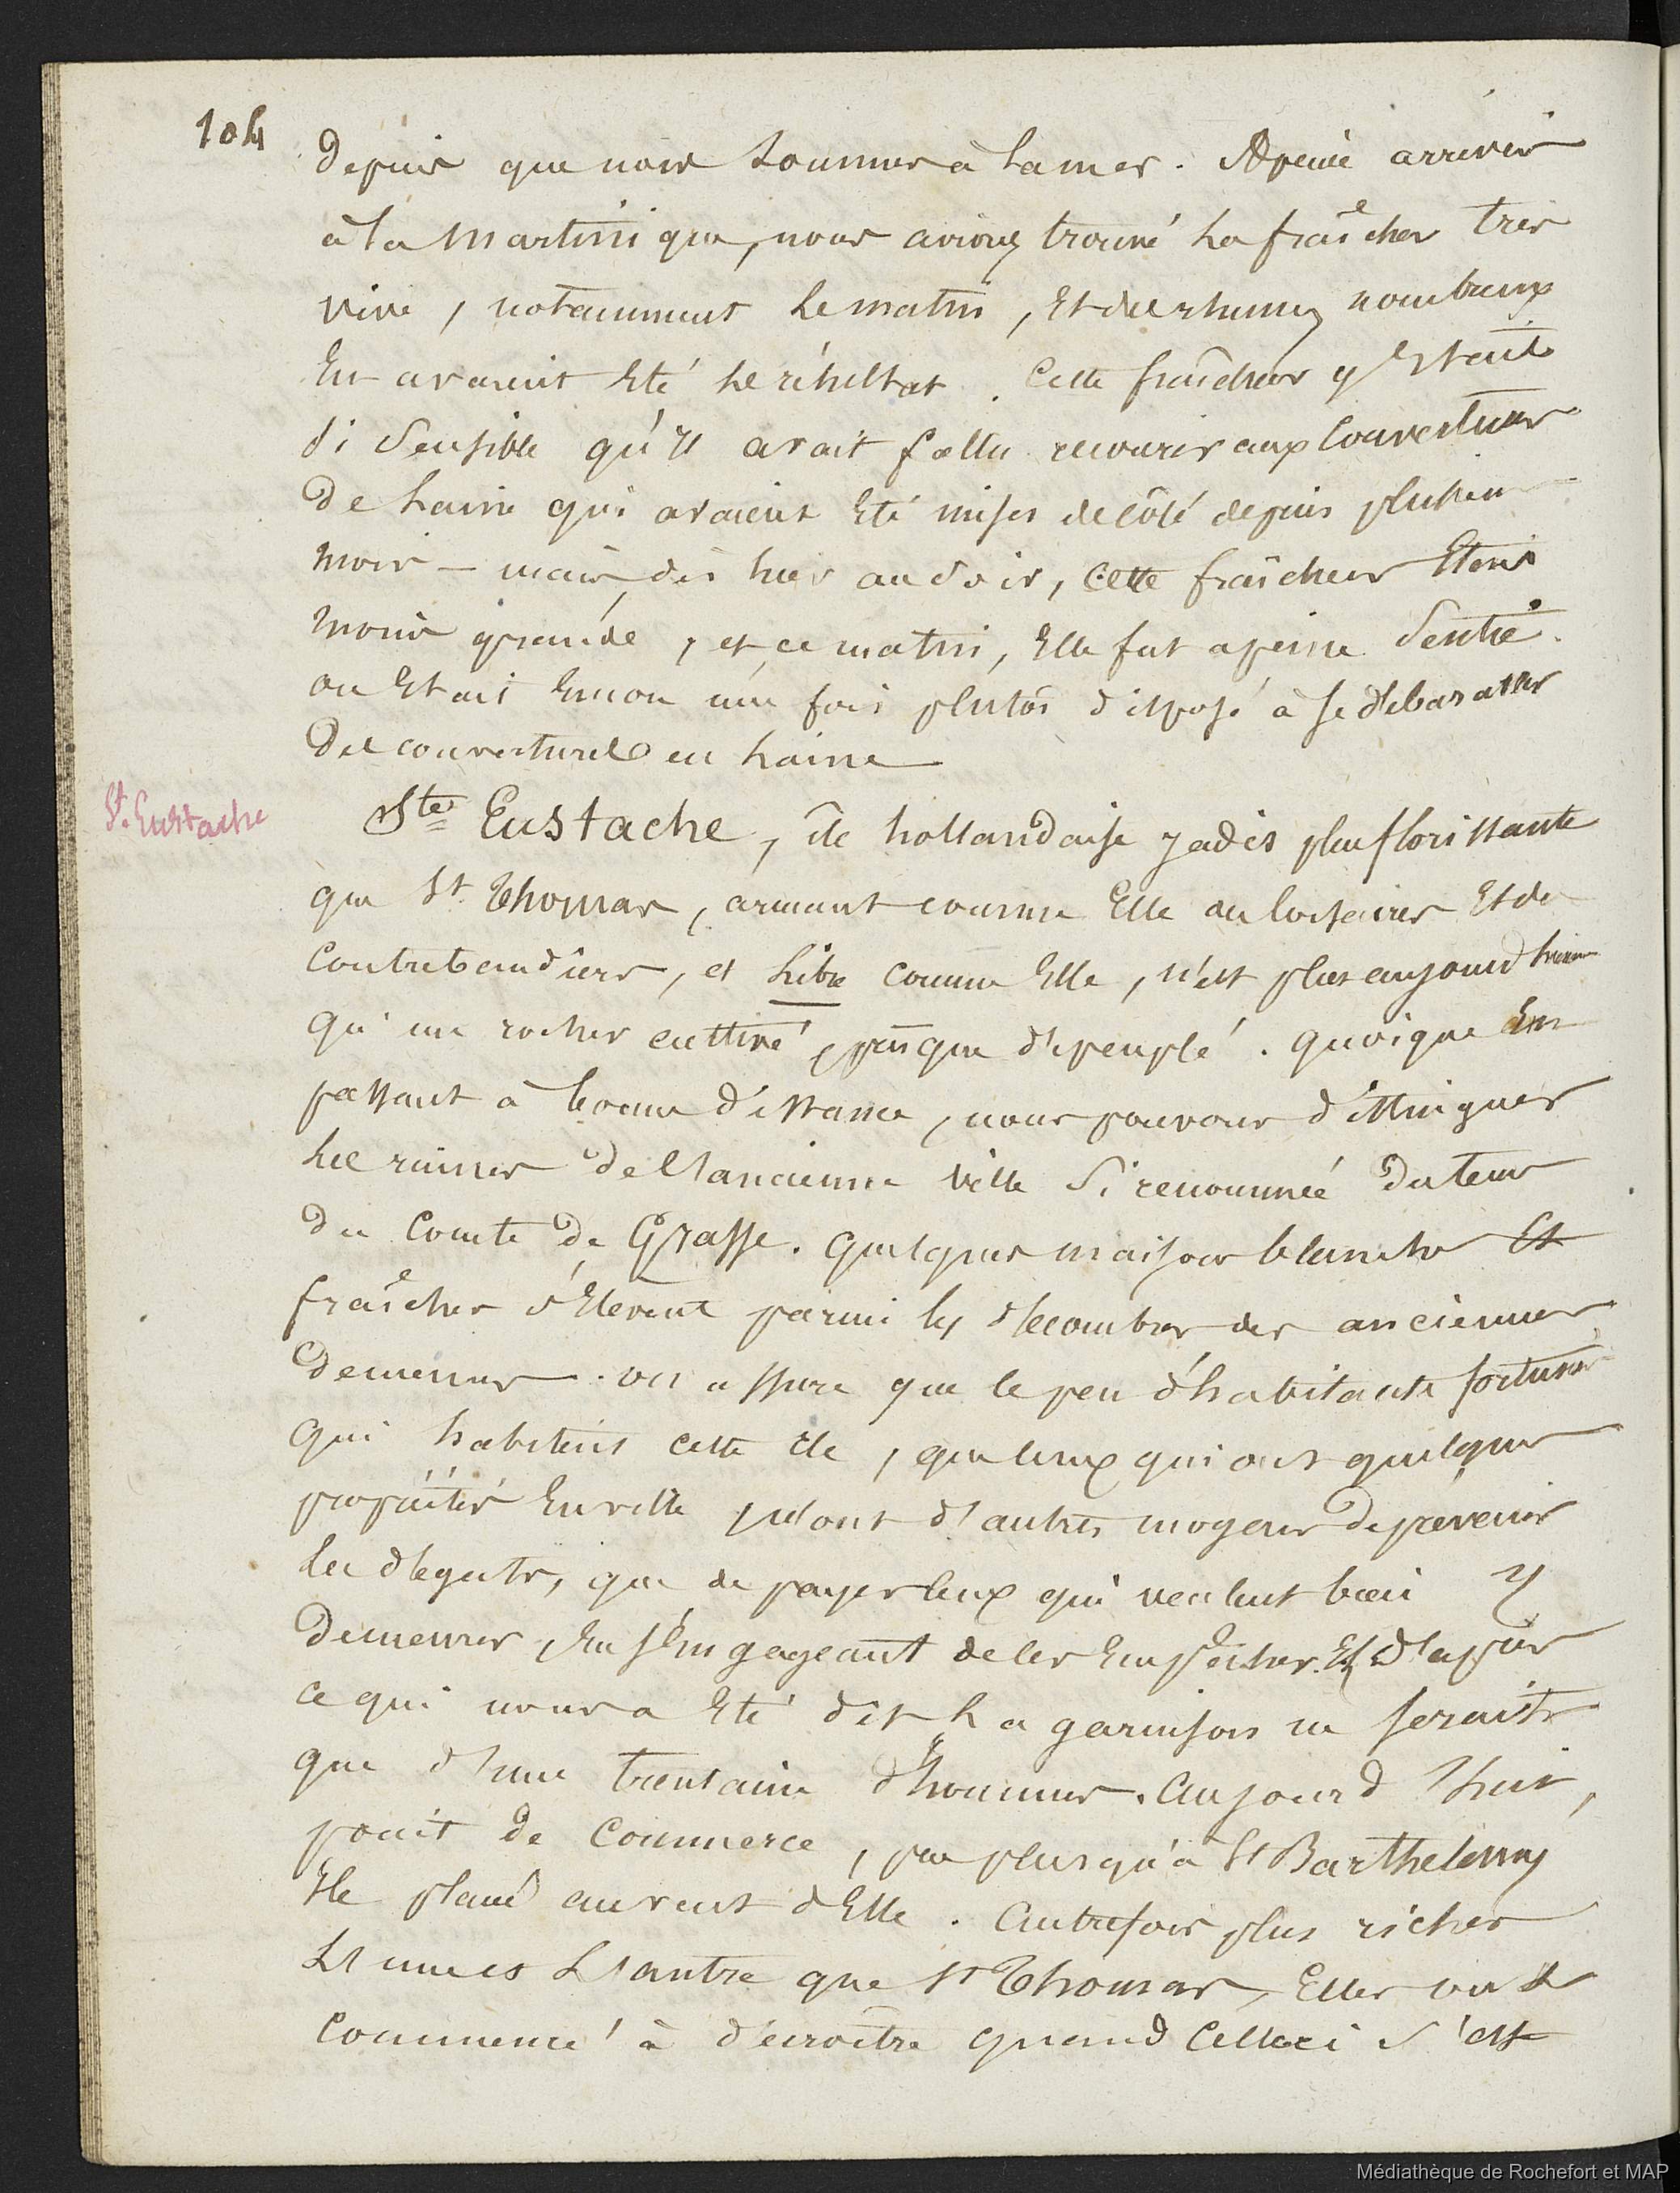 104
depuis que nous sommes à la mer. A peine arrivés
à la Martinique, nous avions trouvé la fraîcheur très
vive, notamment le matin, et des rhumes nombreux
en avaient été le résultat. Cette fraîcheur y était
si sensible qu'il avait fallu recourir aux couvertures
de laine qui avaient été mises de côté depuis plusieurs
mois — mais, dès hier au soir, cette fraîcheur était
moins grande, et ce matin, elle fut a peine sentie.
on était encore une fois plutôt disposé à se débarasser
des couvertures en laine
St. Eustache
Ste Eustache, île hollandaise jadis plus florissante
que St. Thomas, armant comme elle des corsaires et des
contrebandiers, et libre comme elle, n'est plus aujourd'hui
qu'un rocher cultivé, presque dépeuplé. quoique en
passant à bonne distance, nous pouvons distinguer
les ruines de l'ancienne ville si renommée du tems
du Comte de Grasse. quelques maisons blanches et
fraîches s'élèvent parmi les décombres des anciennes
demeures. on assure que le peu d'habitants fortunés
qui habitent cette île, que ceux qui ont quelques
propriétés en ville n'ont d'autres moyens de prévenir
les dégats, que de payer ceux qui veulent bien y
demeurer, en s'engageant de les empêcher. Et d'après
ce qui nous a été dit la garnison ne serait
que d'une trentaine d'hommes. aujourd'hui,
point de commerce, pas plus qu'à St Barthelemy
île placée au vent d'elle. autrefois plus riches
l'une et l'autre que St Thomas, elles ont
commencé à décroître quand celle ci s'est
Médiathèque de Rochefort et MAP